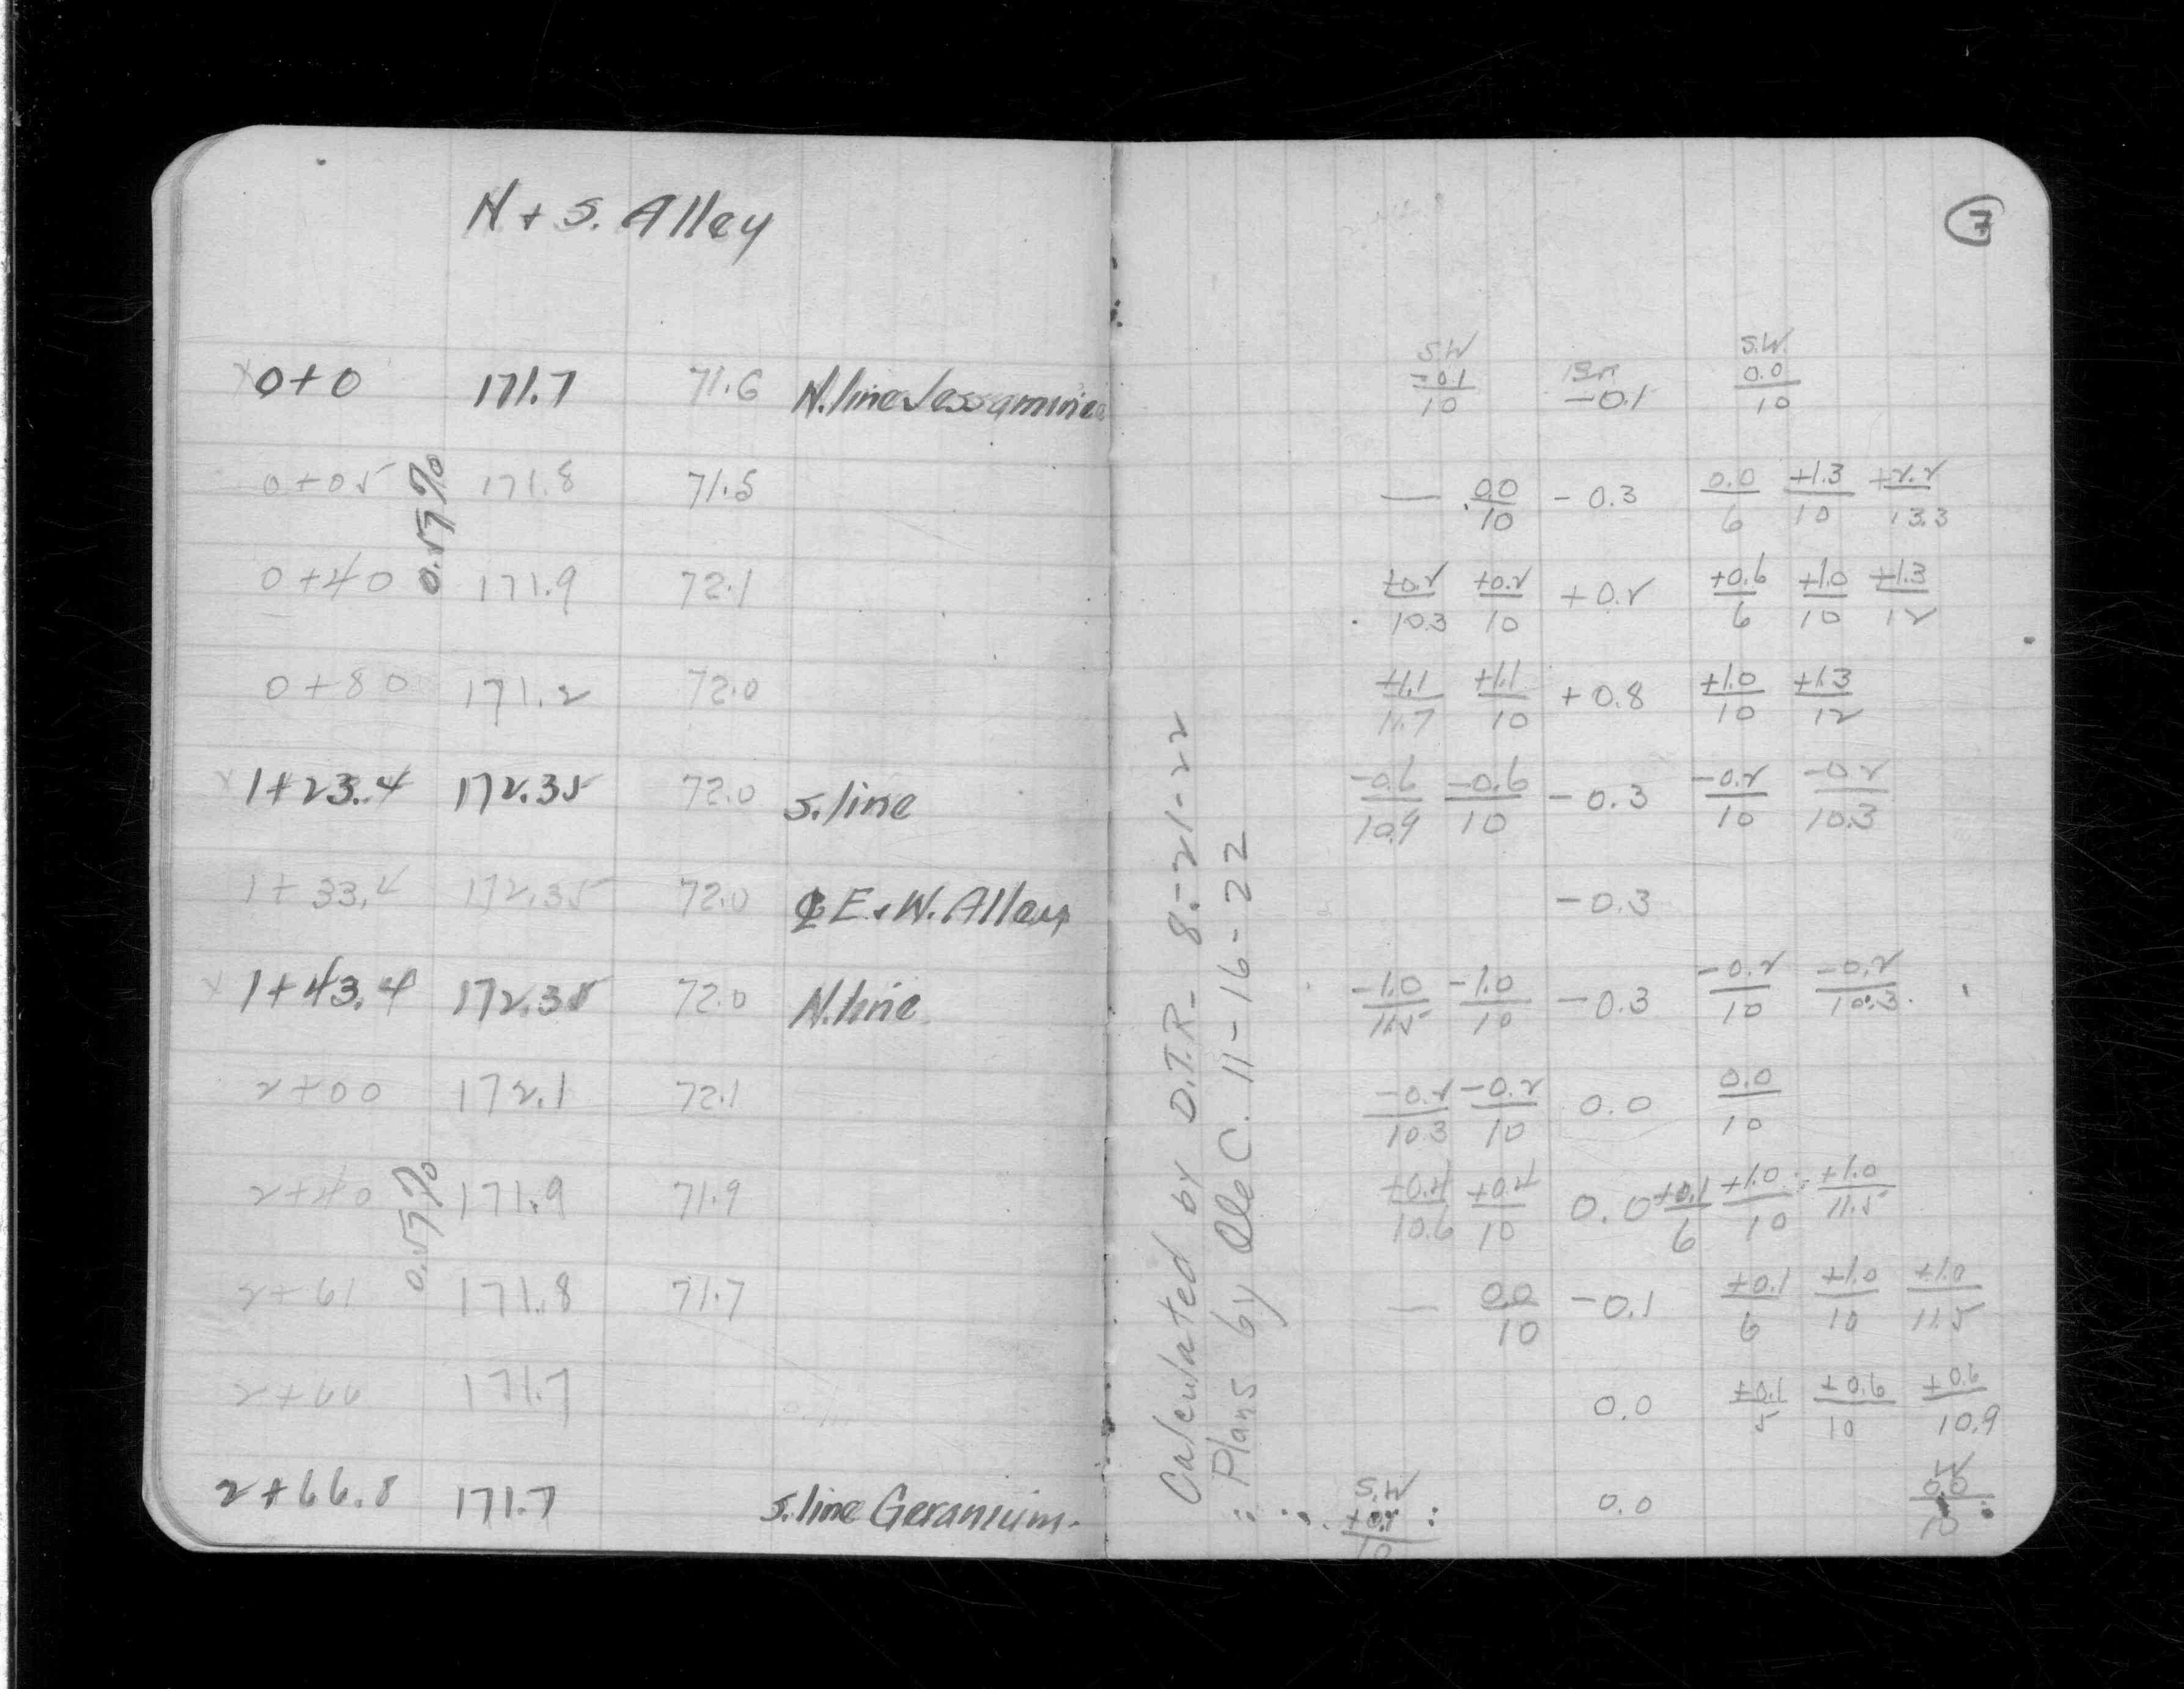 N + S. Alley
7
S.W S.W.
x 0+0 171.7 71.6 N. line Jessamine -0.1/10 -0.1 0.0/10
0+05 171.8 71.5 — 0.0/10 -0.3 0.0/6 +1.3/10 +2.2/13.3
0.57%
0+40 171.9 72.1 +0.2/10.3 +0.2/10 +0.2 +0.6/6 +1.0/10 +1.3/12
0+80 171.2 72.0 +1.1/11.7 +1.1/10 +0.8 +1.0/10 +1.3/12
x 1+23.4 172.35 72.0 S. line -0.6/10.9 -0.6/10 -0.3 -0.2/10 -0.2/10.3
1+33.4 172.35 72.0 ℄ E. + W. Alley -0.3
x 1+43.4 172.35 72.0 N. line -1.0/11.5 -1.0/10 -0.3 -0.2/10 -0.2/10.3
2+00 172.1 72.1 -0.2/10.3 -0.2/10 0.0 0.0/10
2+40 171.9 71.9 +0.4/10.6 +0.4/10 0.0 +0.1/6 +1.0/10 +1.0/11.5
0.57%
2+61 171.8 71.7 — 0.0/10 -0.1 +0.1/6 +1.0/10 +1.0/11.5
2+66 171.7 0.0 +0.1/5 +0.6/10 +0.6/10.9
S.W W
2+66.8 171.7 S. line Geranium. +0.2/10 0.0 0.0/10
Calculated by D.T.R. 8-21-22
Plans by OleC. 11-16-22